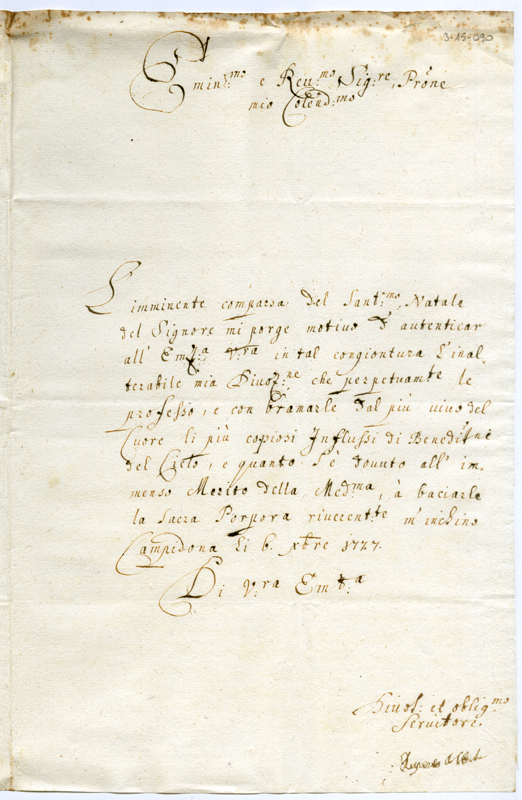 3-15-090
Emin:mo e Reu:mo Sig:re, Prõne
mio Colend:mo
L'imminente comparsa del Sant:mo Natale
del Signore mi porge motiuo d'autenticar
all' Em:za V:ra in tal congiontura l'inal,
terabile mia Diuoz:ne che perpetuamte le
professo, e con bramarle dal più uiuo del
Cuore li più copiosi Influssi di Benedit:ne
del Cielo, e quanto s'è douuto all' im-
menso Merito della Med:ma, à baciarle
la Sacra Porpora riuerent:te m'inchino
Campidona li 6. Xbre 1727.
Di V:ra Em:za
Diuot: et oblig:mo
Seruitore